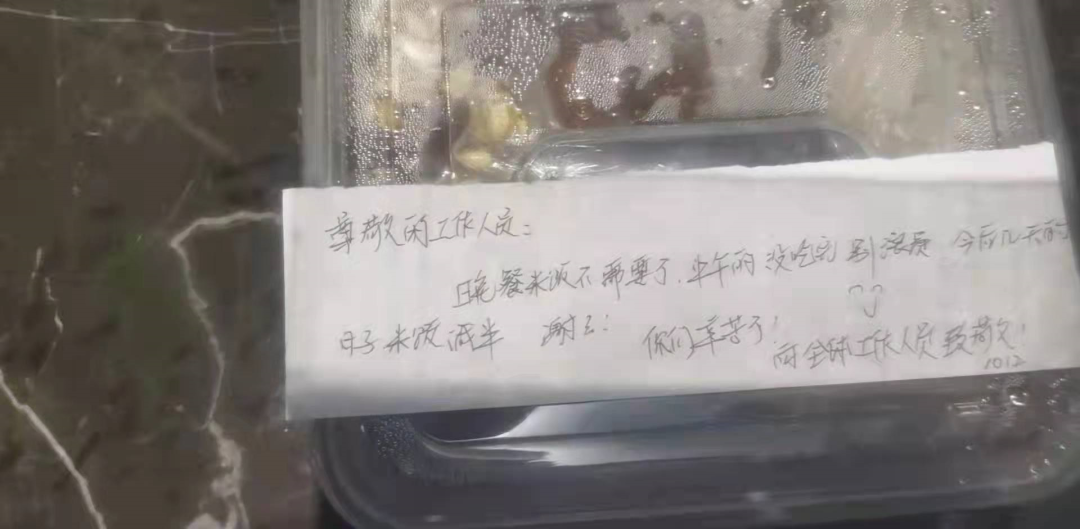 尊敬的工作人员：
晚餐米饭不需要了，中午的没吃完 别浪费 今后几天的
日子米饭减半 谢谢！ 你们辛苦了！
向全体工作人员致敬！
1012